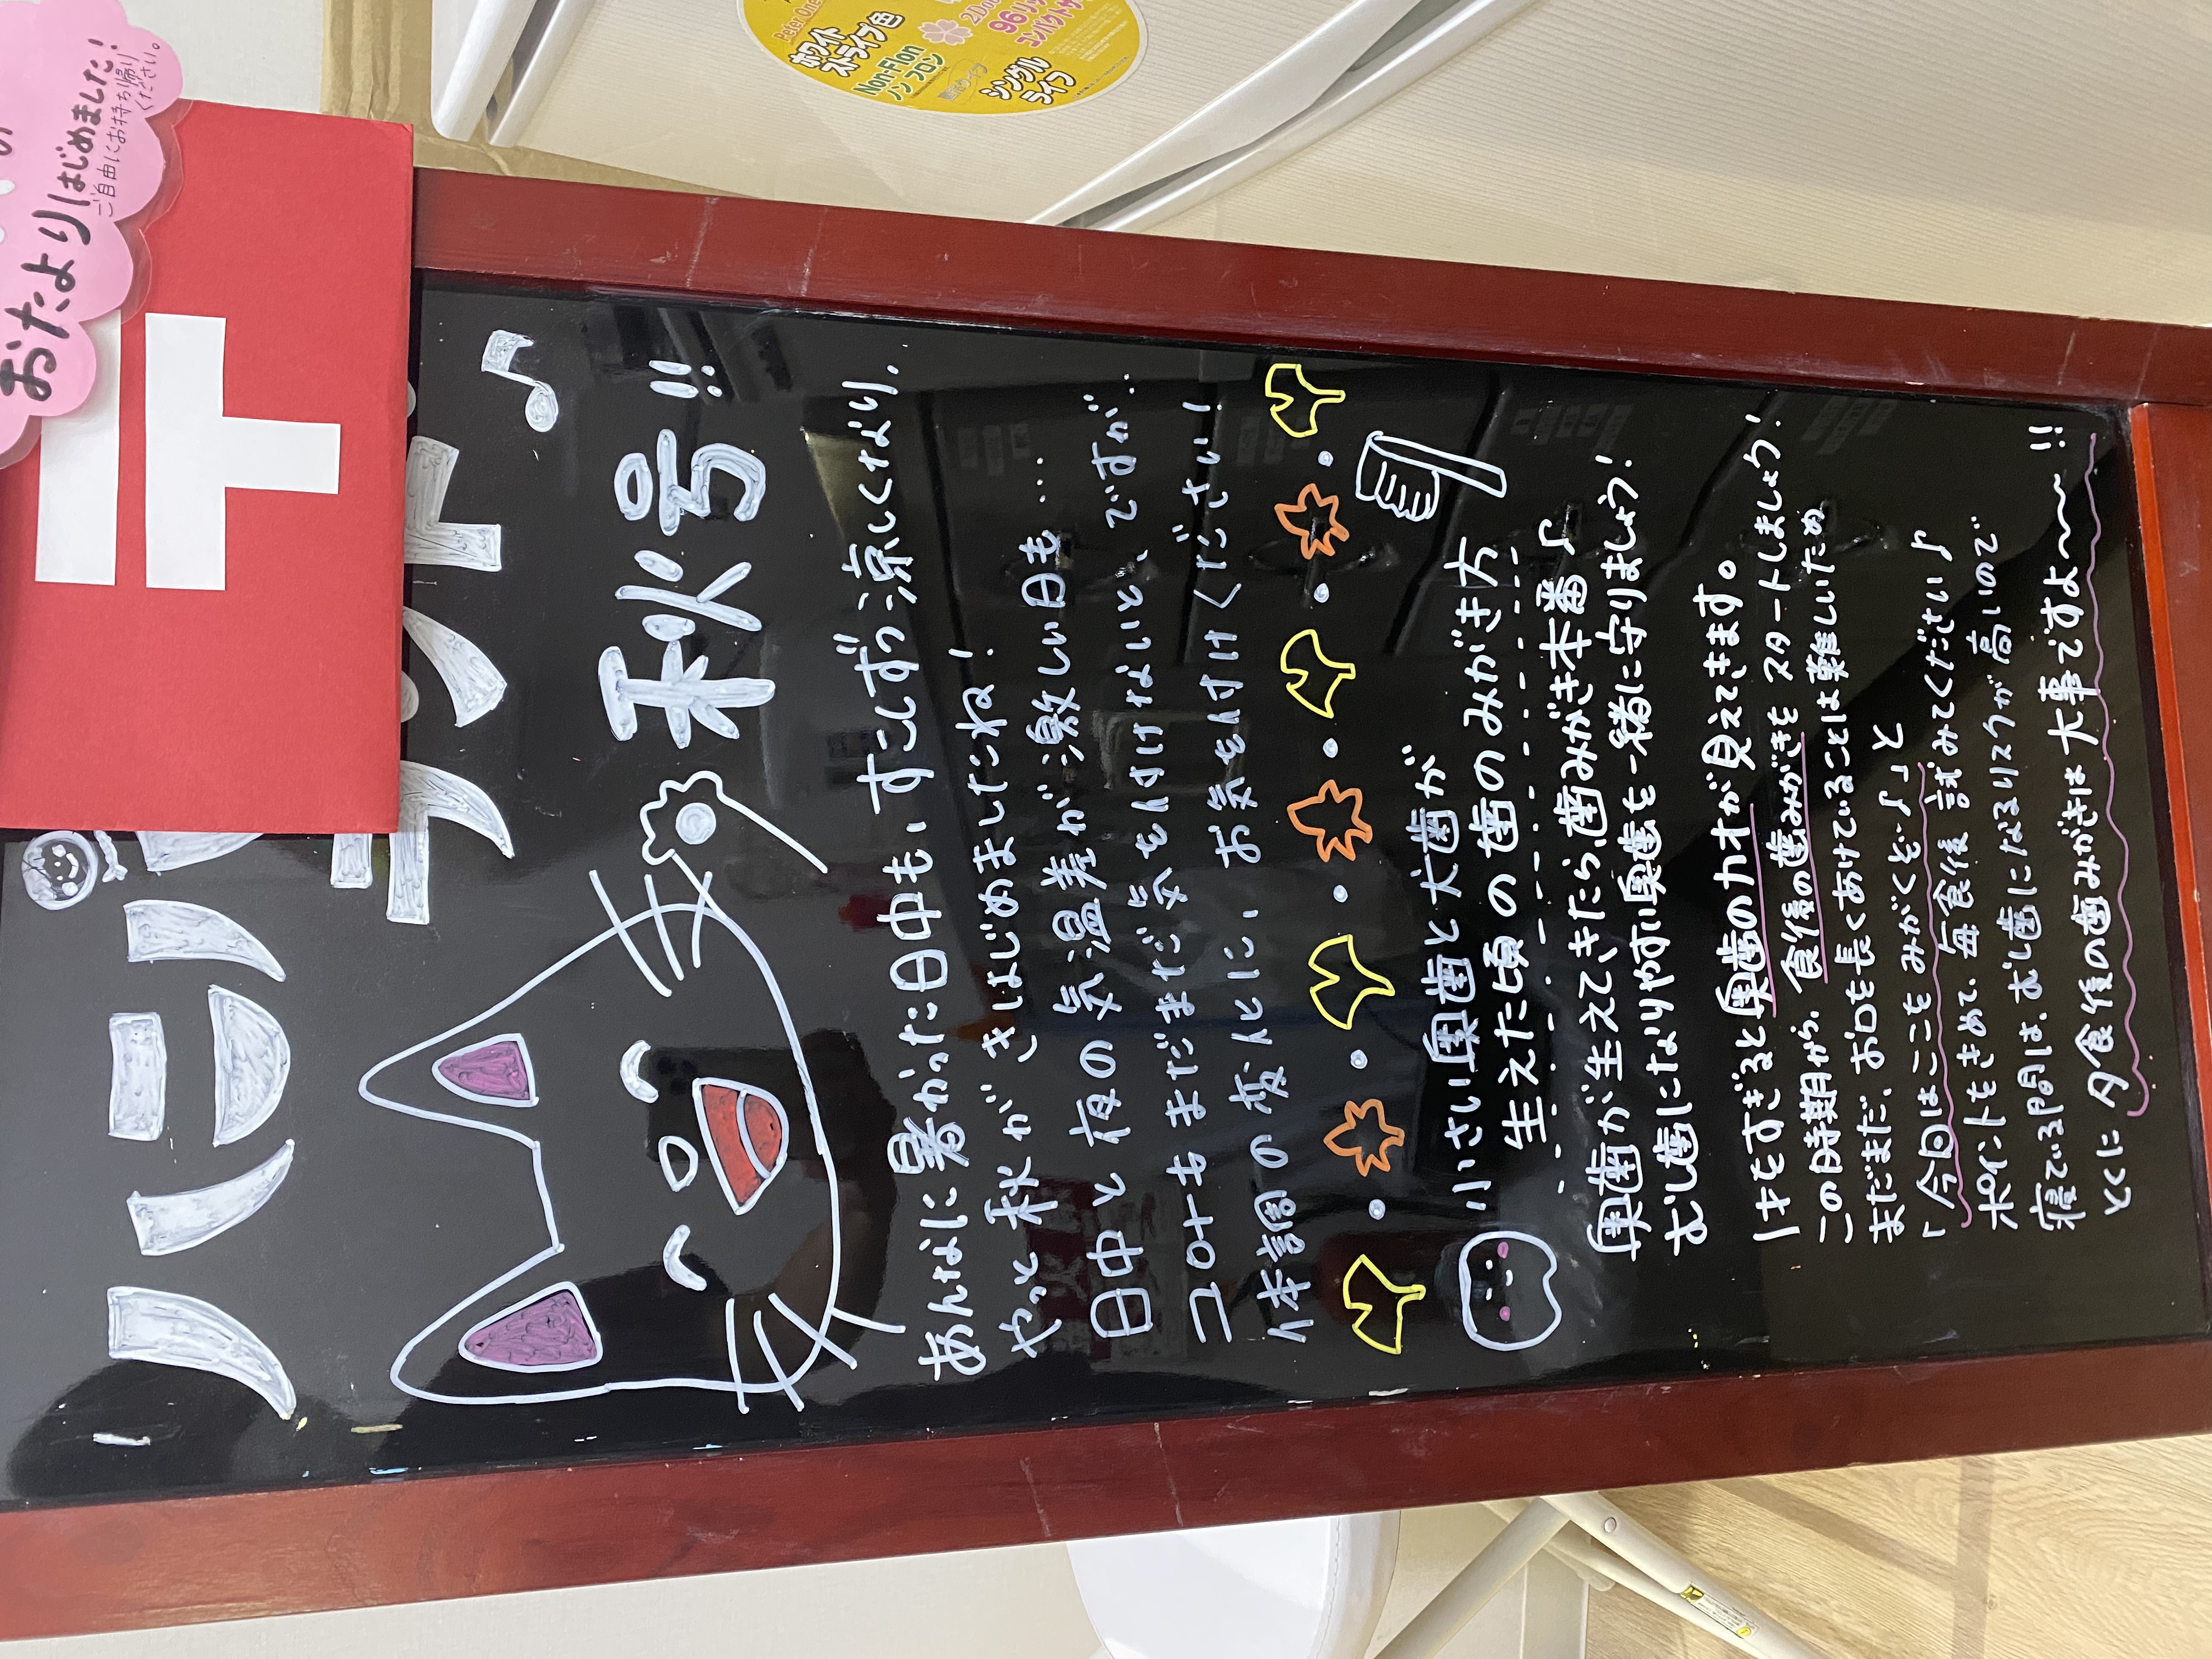 おたより はじめました!
ご自由にお持ち帰り
ください。
秋号!!
あんなに暑かった日中も、すこしずつ涼しくなり、
やっと秋がきはじめましたね!
日中と夜の気温差が激しい日も…
コロナもまだまだ気をけけないと、ですが…
体調の変化に、お気を付けください!
小さい奥歯と犬歯が
生えた頃の歯のみがき方
奥歯が生えてきたら、歯みがき本番♪
むし歯になりやすい奥歯を一緒に守りましょう!
1才をすぎると奥歯のカオが見えてきます。
この時期から、食後の歯みがきもスタートしましょう!
まだまだ、お口を長くあけていることは難しいため
「今回はここをみがくぞ♪」と
ポイントをきめて、毎食後試みてください♪
寝ている間は、むし歯になるリスクが高いので
とくに夕食後の歯みがきは大事ですよ〜〜!!
Non-Flon
ノンフロン
ホワイト
ストライプ色
シングル
ライフ